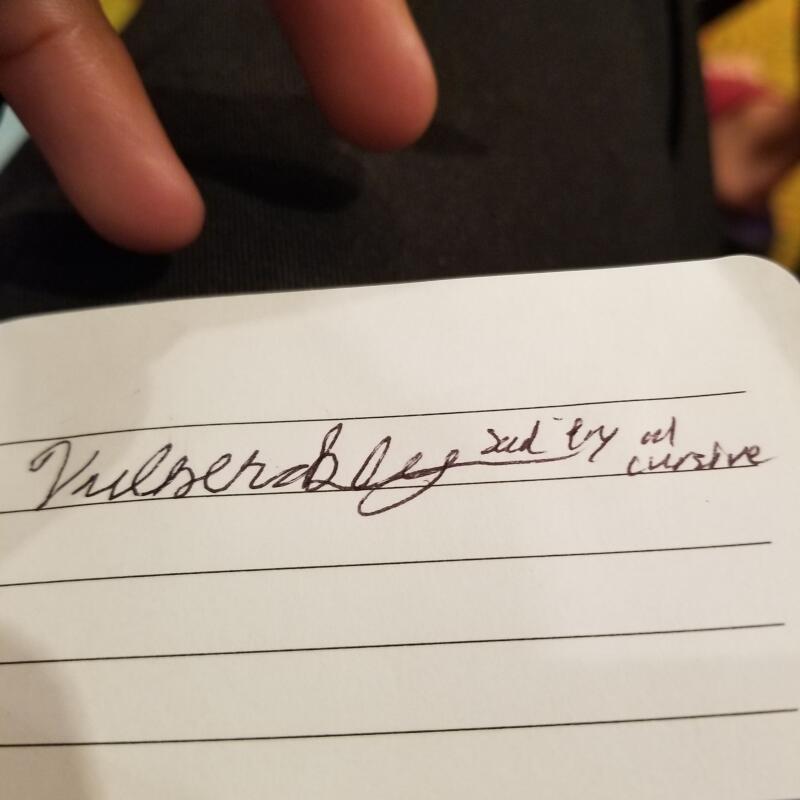 Vulnerabley sad try at
cursive